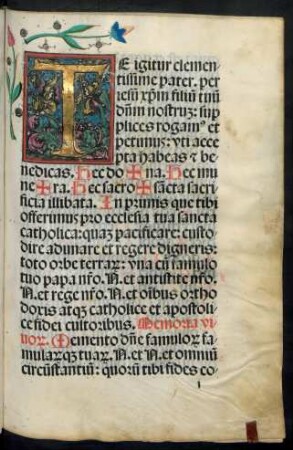 TE igitur clemen
tissime pater. per
iesū xp̄m filiū tuū
dn̄m nostruꝫ: sup
plices rogamꝰ et
petimus: vti acce
pta habeas ⁊ be
nedicas. Hec do ✠ na. Hec mu
ne ✠ ra. Hec sacro ✠ sācta sacri
ficia illibata. In primis que tibi
offerimus pro ecclesia tua sancta
catholica: quaꝫ pacificare: custo
dire adunare et regere digneris:
toto orbe terraꝝ: vna cū famulo
tuo papa nr̄o. N. et antistite nr̄o.
N. et rege nr̄o. N. et oībus ortho
doxis atqꝫ catholice et apostoli
ce fidei cultoribus. Memoria vi
uoꝝ. Memento dn̄e famuloꝝ fa
mularūqꝫ tuaꝝ. N. et N. et omniū
circūstantiū: quorū tibi fides co
1